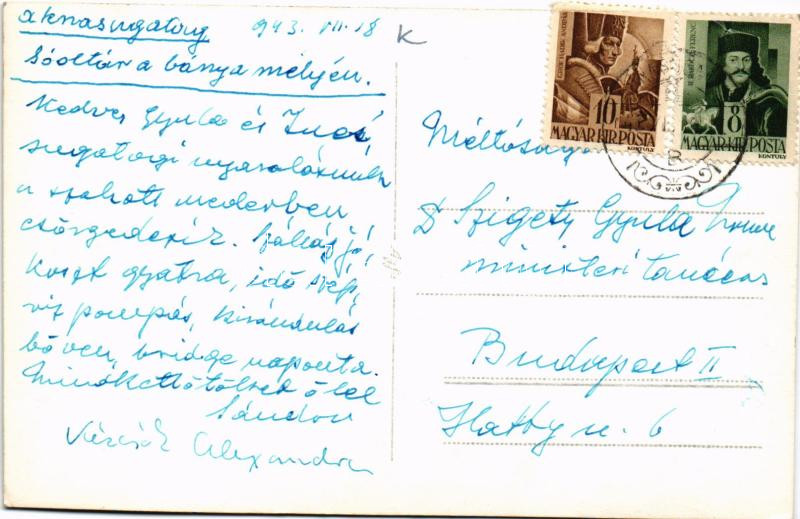 Aknasugatag 943. VII. 18
Sóoltár a bánya mélyén.
K
Kedves Gyula és Inci,
sugatagi nyaralásunk
a szokott mederben
csörgedezik. Szállás jó,
koszt gyatra, idő szép,
víz pompás, kirándulás
bőven, bridge naponta.
Mindkettőtöket ölel
Sándor
Alexandra
10
MAGYAR·KIR·POSTA
KONTULY
II. RÁKÓCZI FERENC
8
MAGYAR·KIR·POSTA
KONTULY
Méltóságos
Dr Szigety Gyula
miniszteri tanácsos
Budapest II
Hattyu u. 6